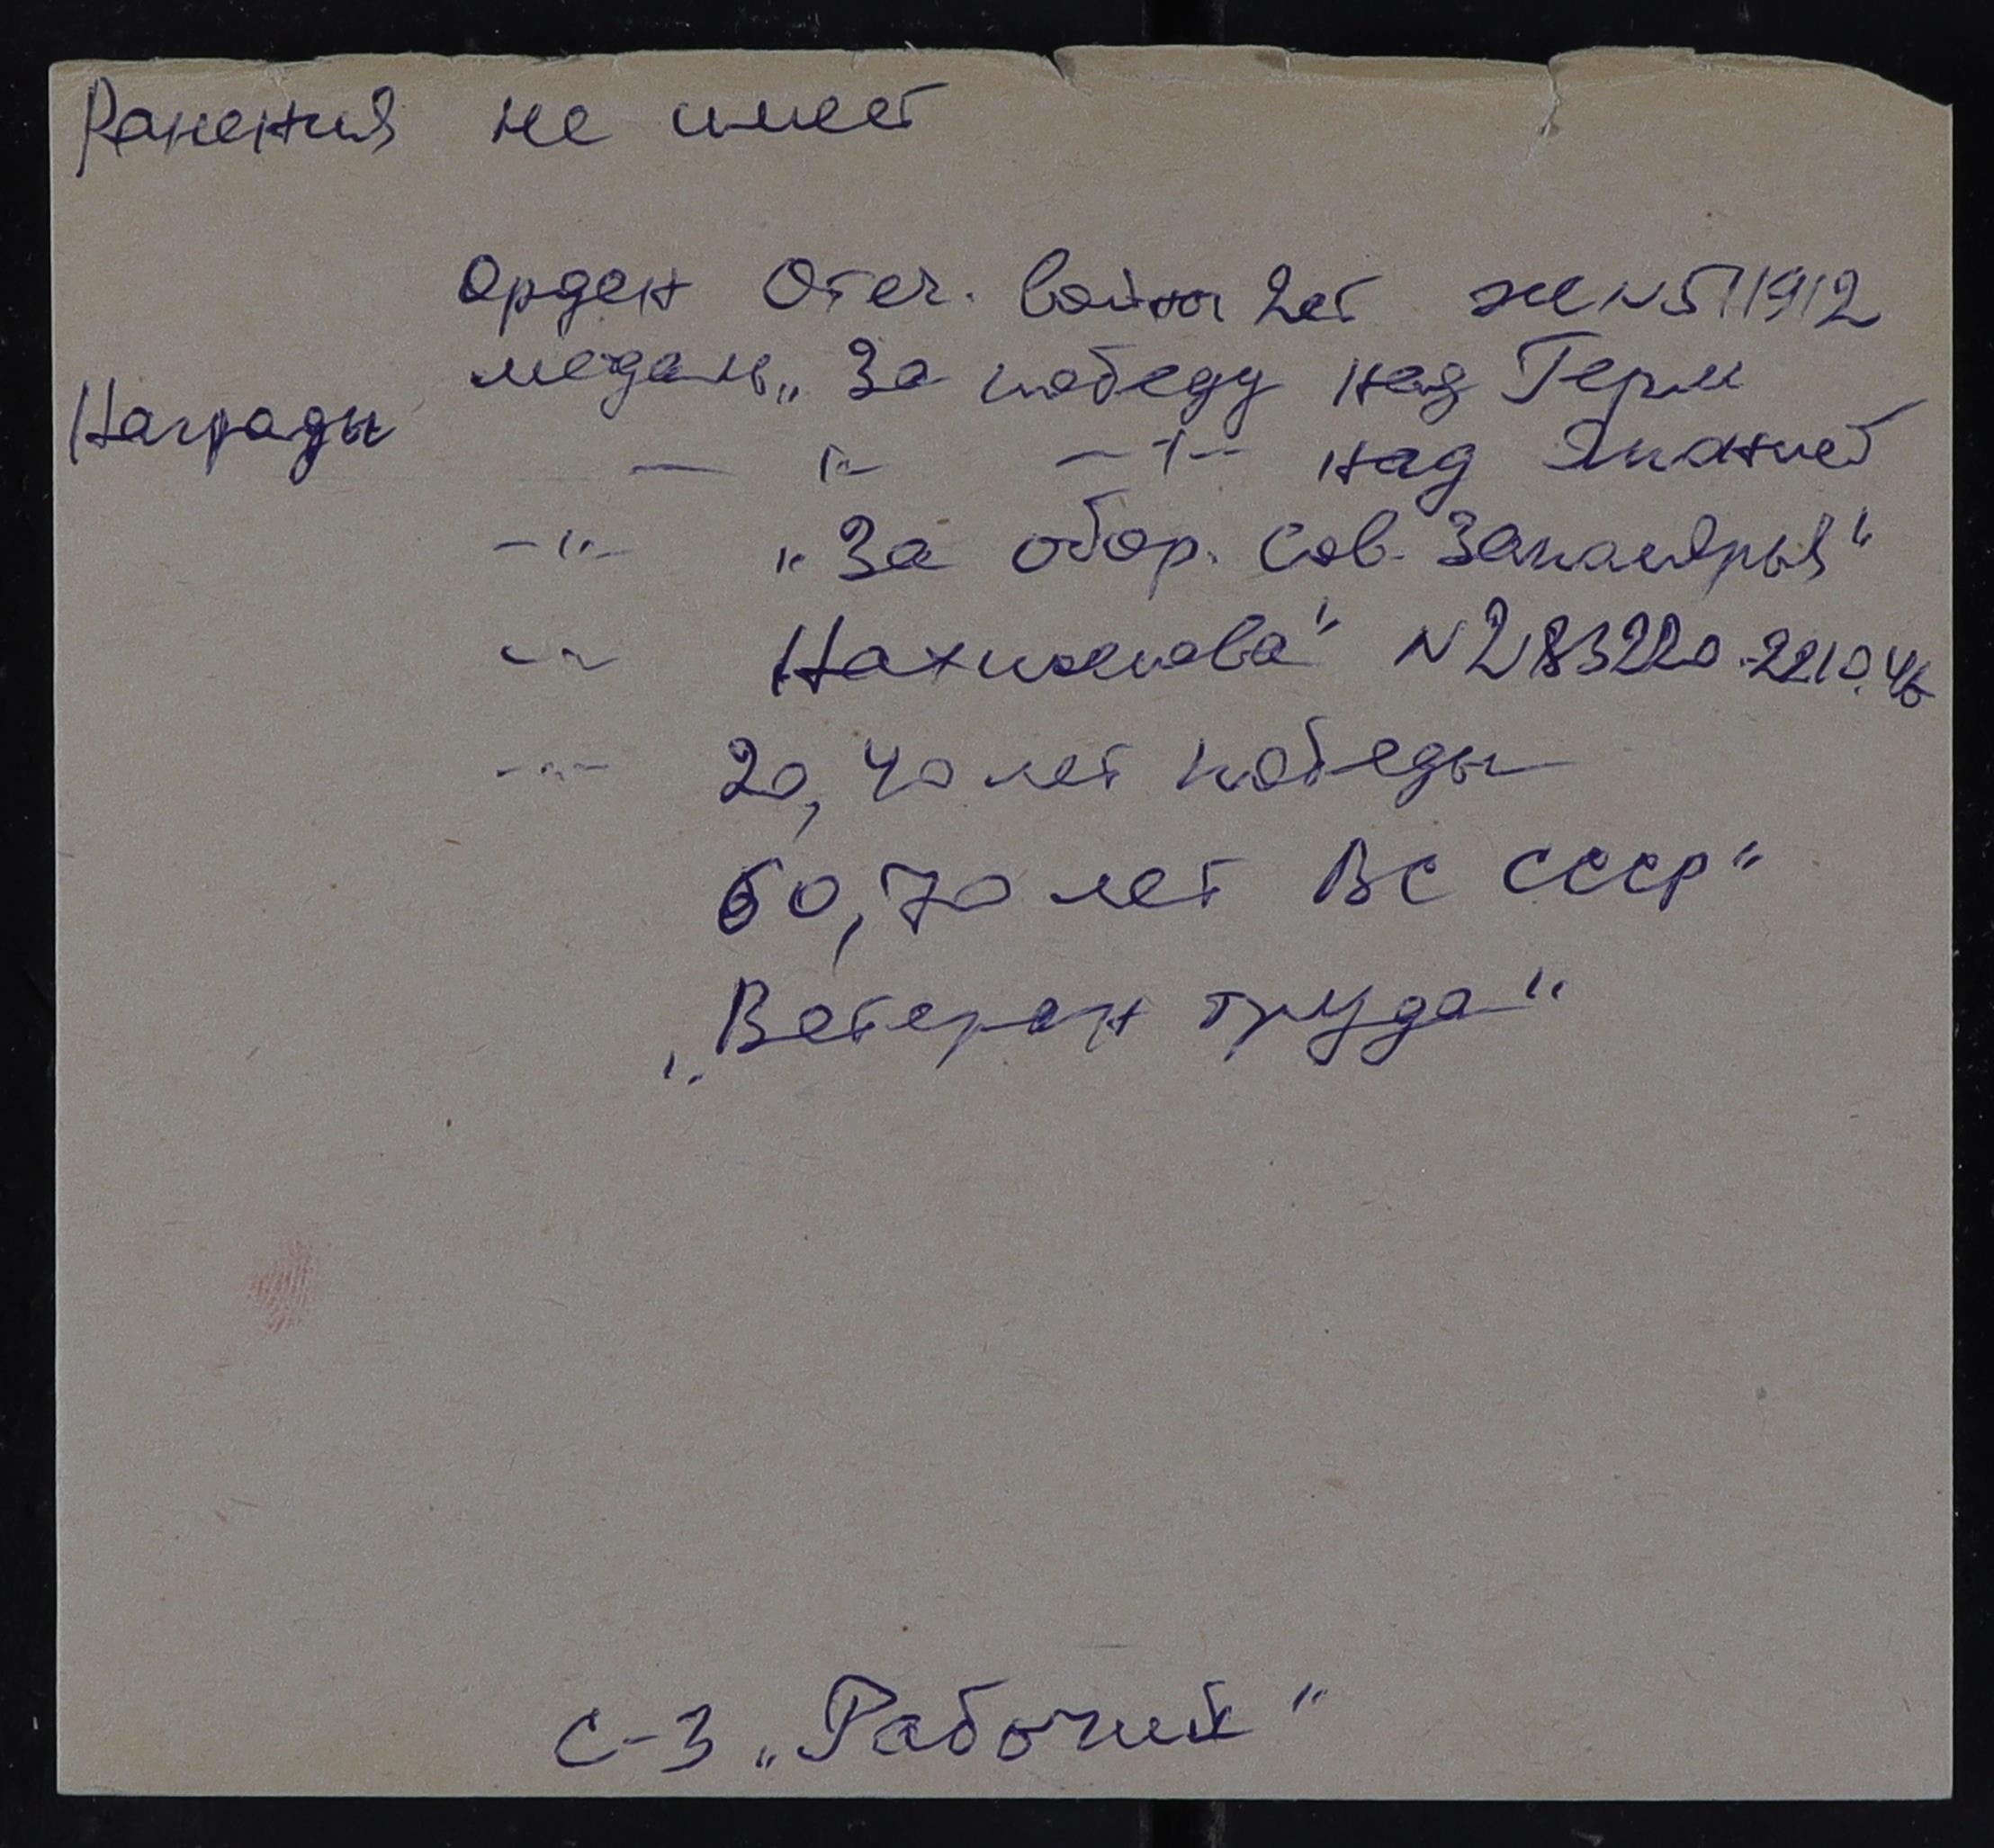 Ранения не имеет
Орден Отеч. войны 2ст ж N 511912
медаль „За победу над Герм
Награды
— „ — — „ — над Японией
— „ — „За обор. Сов. Заполярья"
— „ — Нахимова" N 283220 - 22.10.46
— „ — 20, 40 лет победы
60, 70 лет ВС СССР"
„Ветеран труда"
с-з „Рабочий"